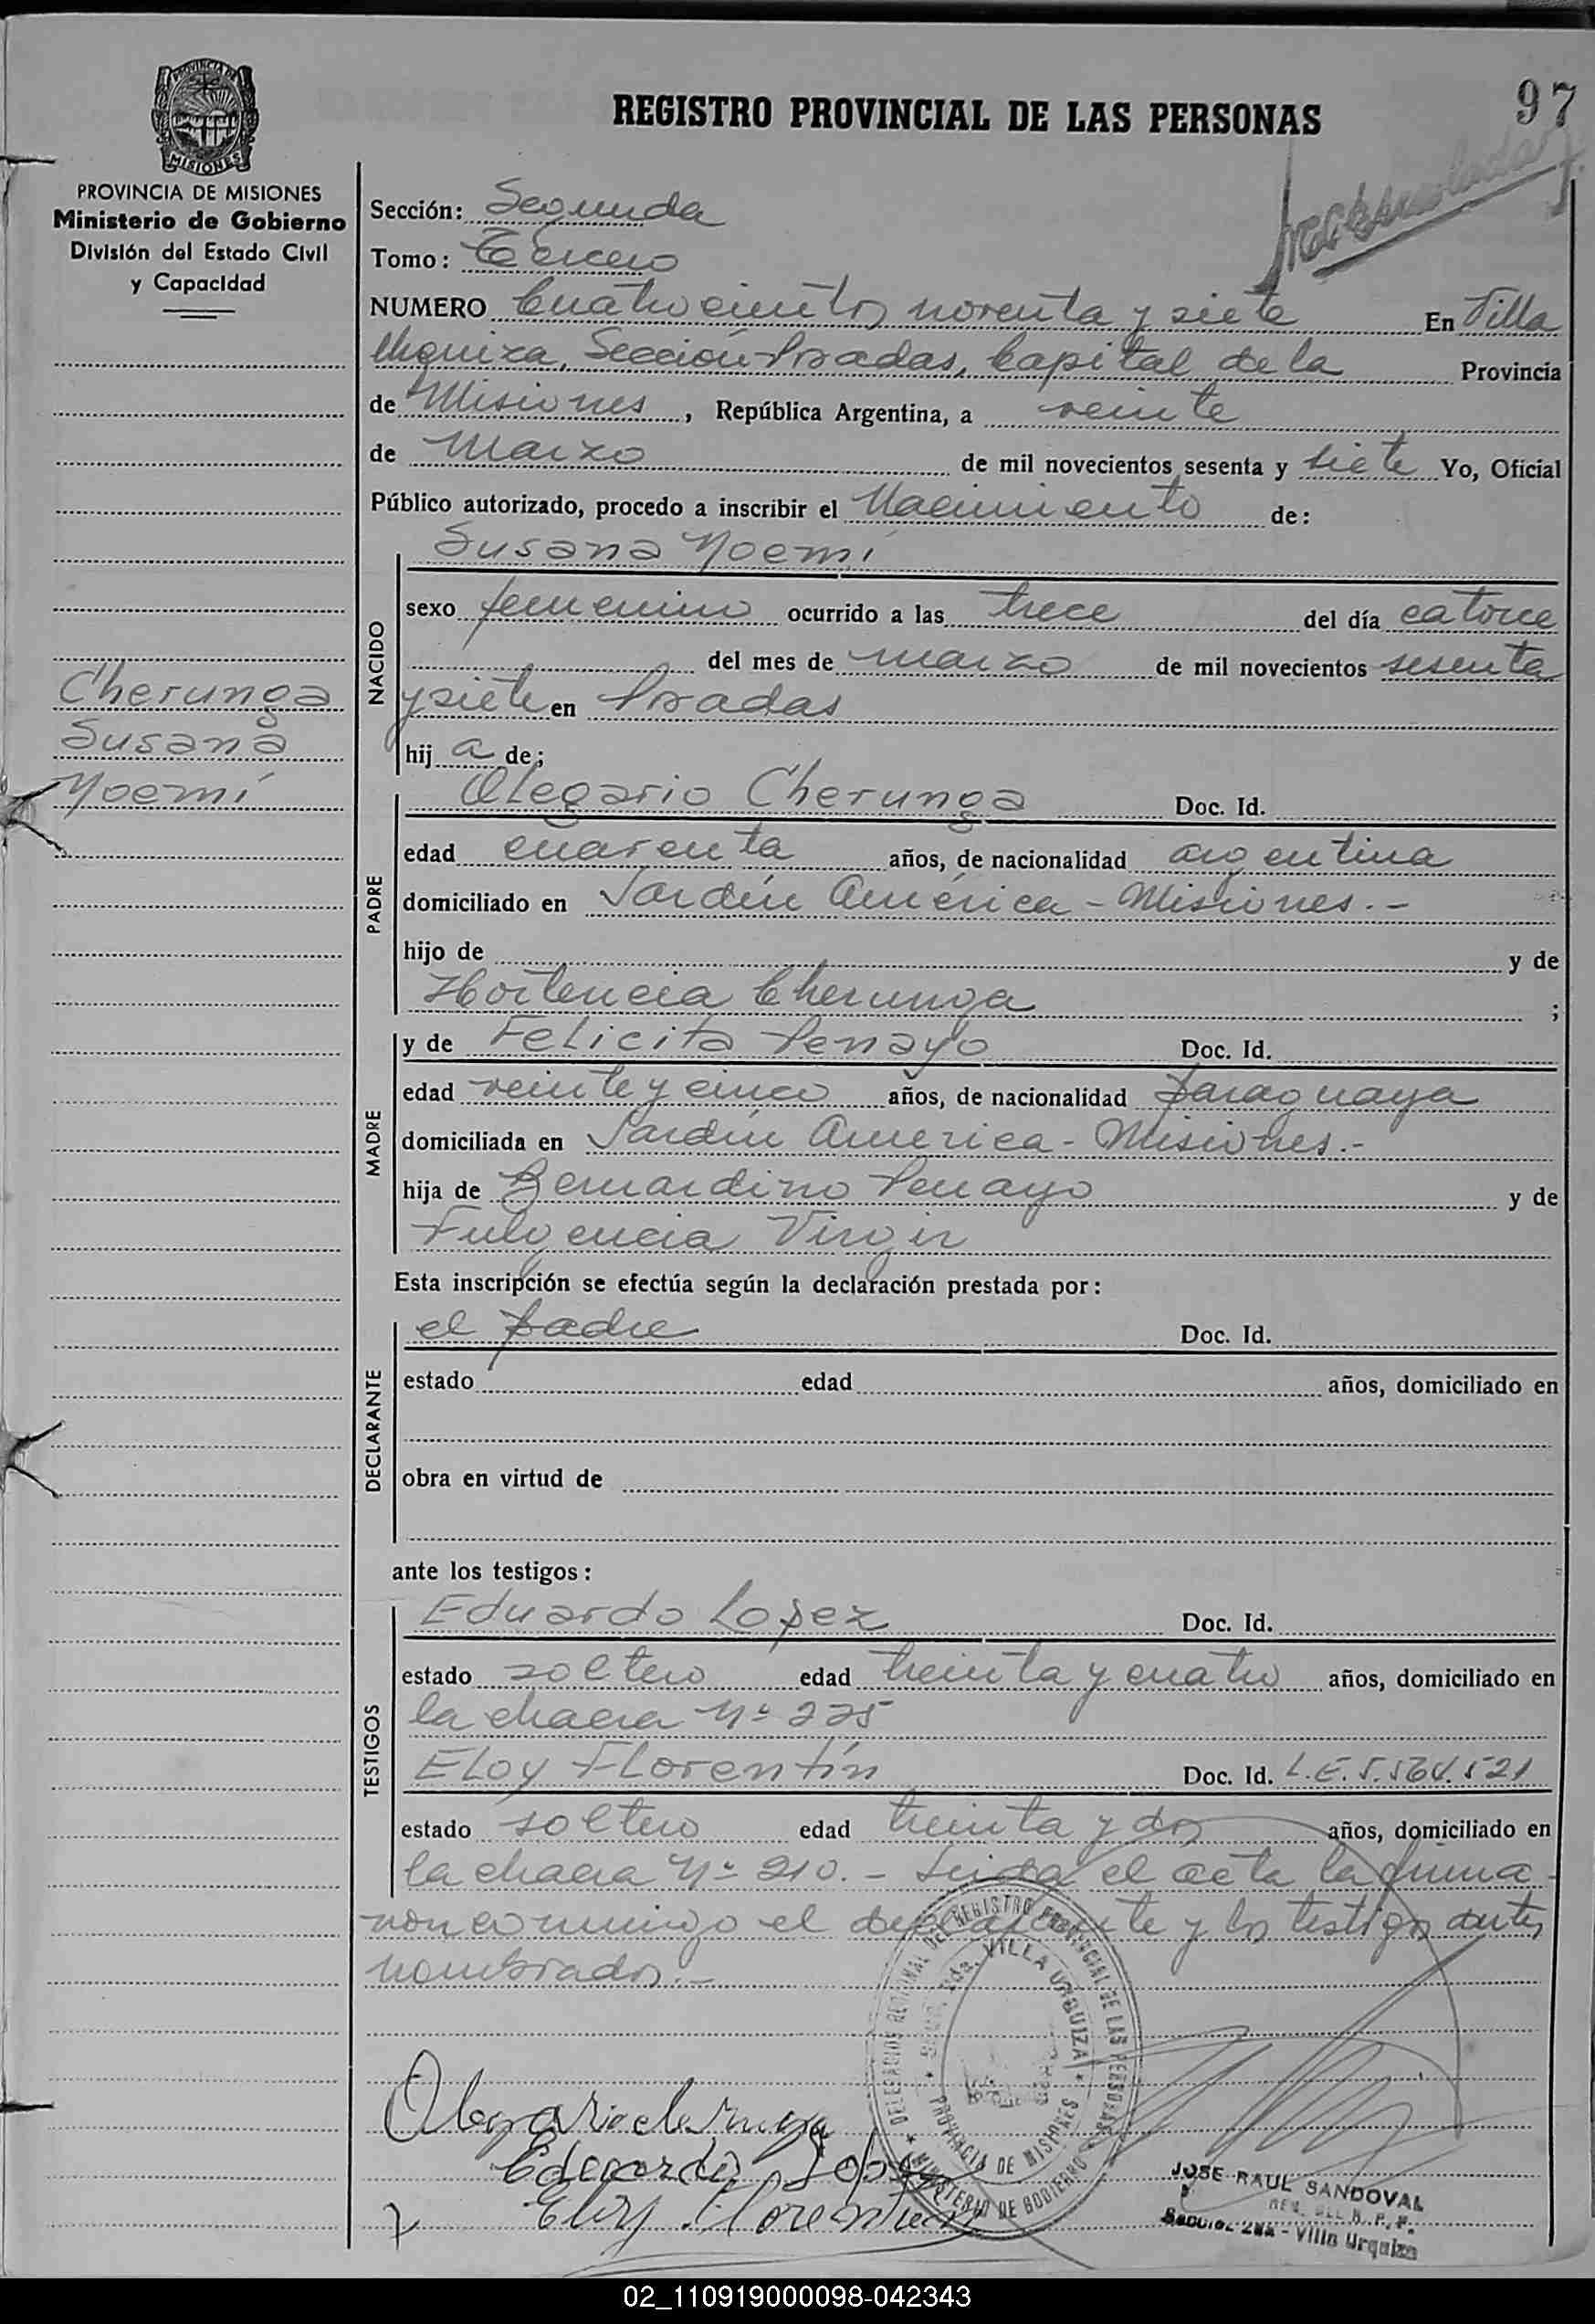 97
REGISTRO PROVINCIAL DE LAS PERSONAS
PROVINCIA DE
MISIONES
PROVINCIA DE MISIONES
Ministerio de Gobierno
División del Estado Civil
y Capacidad
Sección: Segunda
Tomo: Tercero
NUMERO Cuatrocientos noventa y siete En Villa
Urquiza, Sección Posadas, Capital de la Provincia
de Misiones, República Argentina, a veinte
de Marzo de mil novecientos sesenta y siete Yo, Oficial
Público autorizado, procedo a inscribir el Nacimiento de:
Susana Noemí
NACIDO
sexo femenino ocurrido a las trece del día catorce
del mes de marzo de mil novecientos sesenta
y siete en Posadas
hija de;
Cherunga
Susana
Noemí
PADRE
Olegario Cherunga Doc. Id.
edad cuarenta años, de nacionalidad argentina
domiciliado en Jardín América - Misiones.-
hijo de y de
Hortencia Cherunga ;
MADRE
y de Felicita Penayo Doc. Id.
edad veinte y cinco años, de nacionalidad paraguaya
domiciliada en Jardín America - Misiones.-
hija de Bernardino Penayo y de
Fulgencia Virgin
Esta inscripción se efectúa según la declaración prestada por:
DECLARANTE
el padre Doc. Id.
estado edad años, domiciliado en
obra en virtud de
ante los testigos:
TESTIGOS
Eduardo Lopez Doc. Id.
estado soltero edad treinta y cuatro años, domiciliado en
la chacra Nº 225
Eloy Florentín Doc. Id. L.E. 5.564.521
estado soltero edad treinta y dos años, domiciliado en
la chacra Nº 210.- Leida el acta la firma-
ron conmigo el declarante y los testigos antes
nombrados.-
DELEGACION REGIONAL DEL REGISTRO PROVINCIAL DE LAS PERSONAS
VILLA URQUIZA
PROVINCIA DE MISIONES
MINISTERIO DE GOBIERNO
Olegario cherunga
Eduardo Lopez
Eloy Florentin
JOSE RAUL SANDOVAL
Sección 2da - Villa Urquiza
02_110919000098-042343